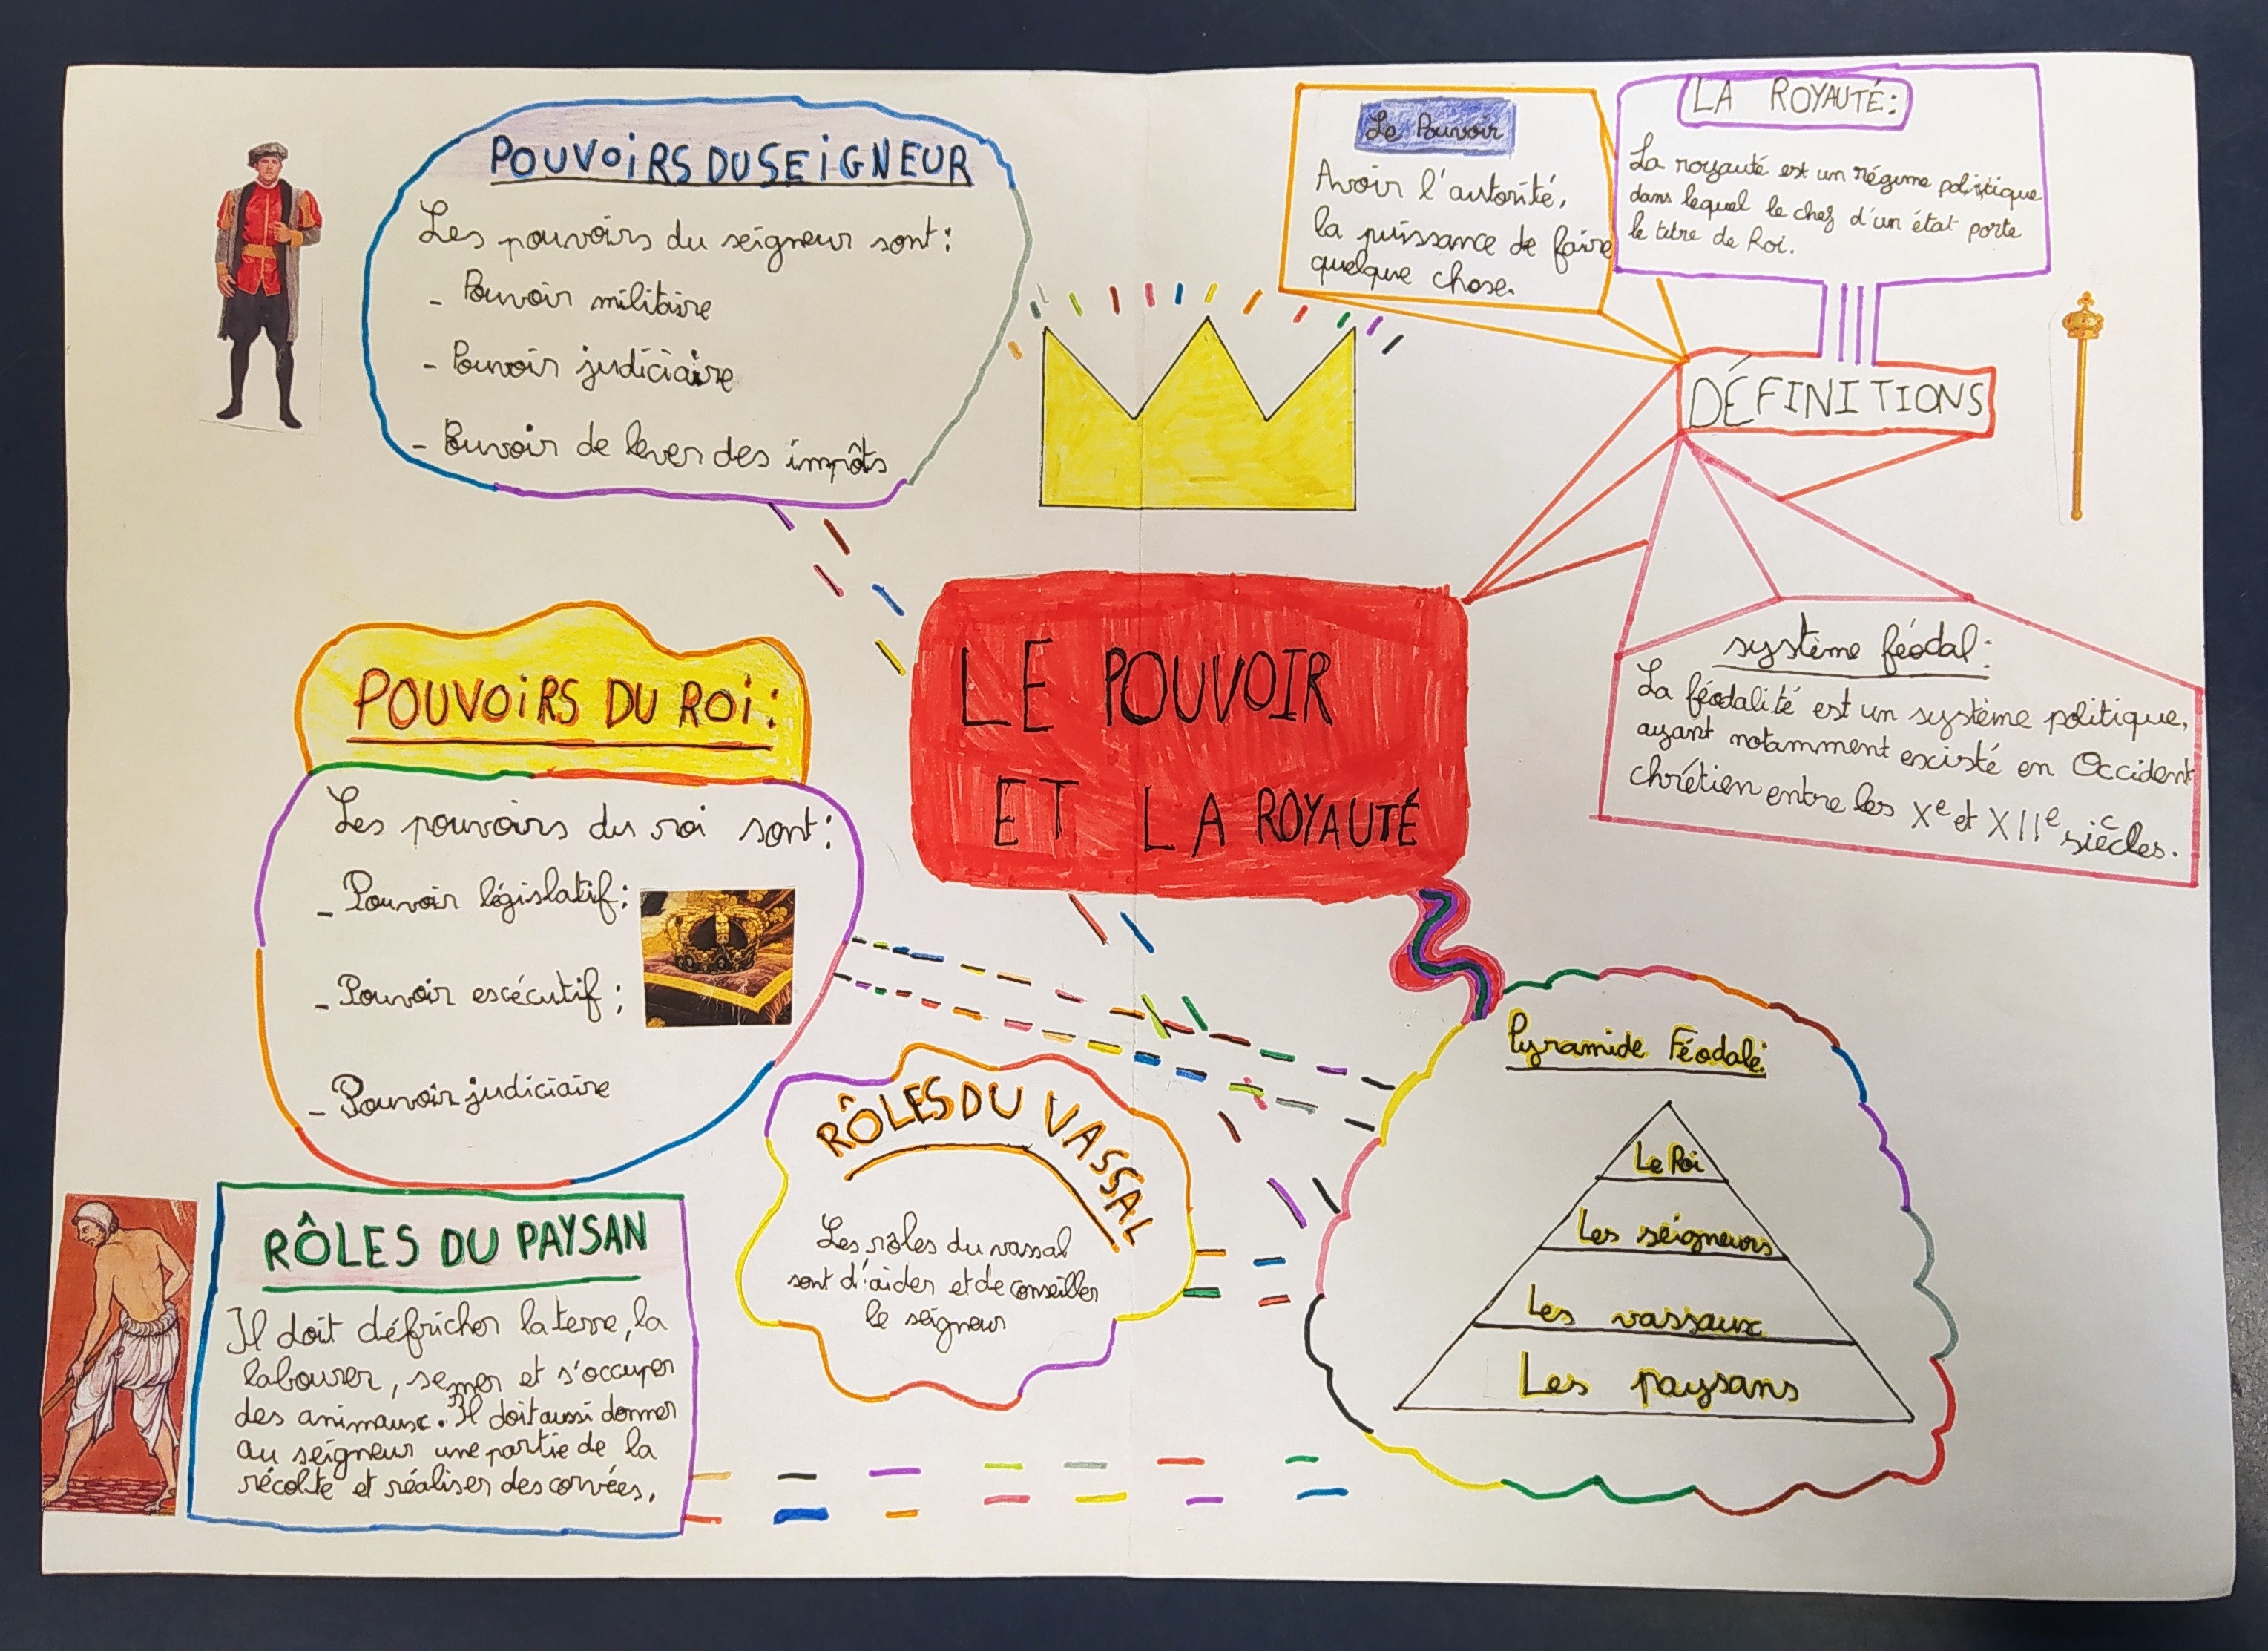 POUVOIRS DU SEIGNEUR
Les pouvoirs du seigneur sont:
- Pouvoir militaire
- Pouvoir judiciaire
- Pouvoir de lever des impôts
Le Pouvoir
Avoir l'autorité,
la puissance de faire
quelque chose.
LA ROYAUTÉ:
La royauté est un régime politique
dans lequel le chef d'un état porte
le titre de Roi.
DÉFINITIONS
système féodal:
La féodalité est un système politique,
ayant notamment existé en Occident
chrétien entre les Xe et XIIe siècles.
LE POUVOIR
ET LA ROYAUTÉ
POUVOIRS DU ROI:
Les pouvoirs du roi sont:
- Pouvoir législatif:
- Pouvoir escécutif:
- Pouvoir judiciaire
RÔLES DU VASSAL
Les rôles du vassal
sont d'aider et de conseiller
le seigneur
RÔLES DU PAYSAN
Il doit défricher la terre, la
labourer, semer et s'occuper
des animaux. Il doit aussi donner
au seigneur une partie de la
récolte et réaliser des corvées.
Pyramide Féodale:
Le Roi
Les seigneurs
Les vassaux
Les paysans